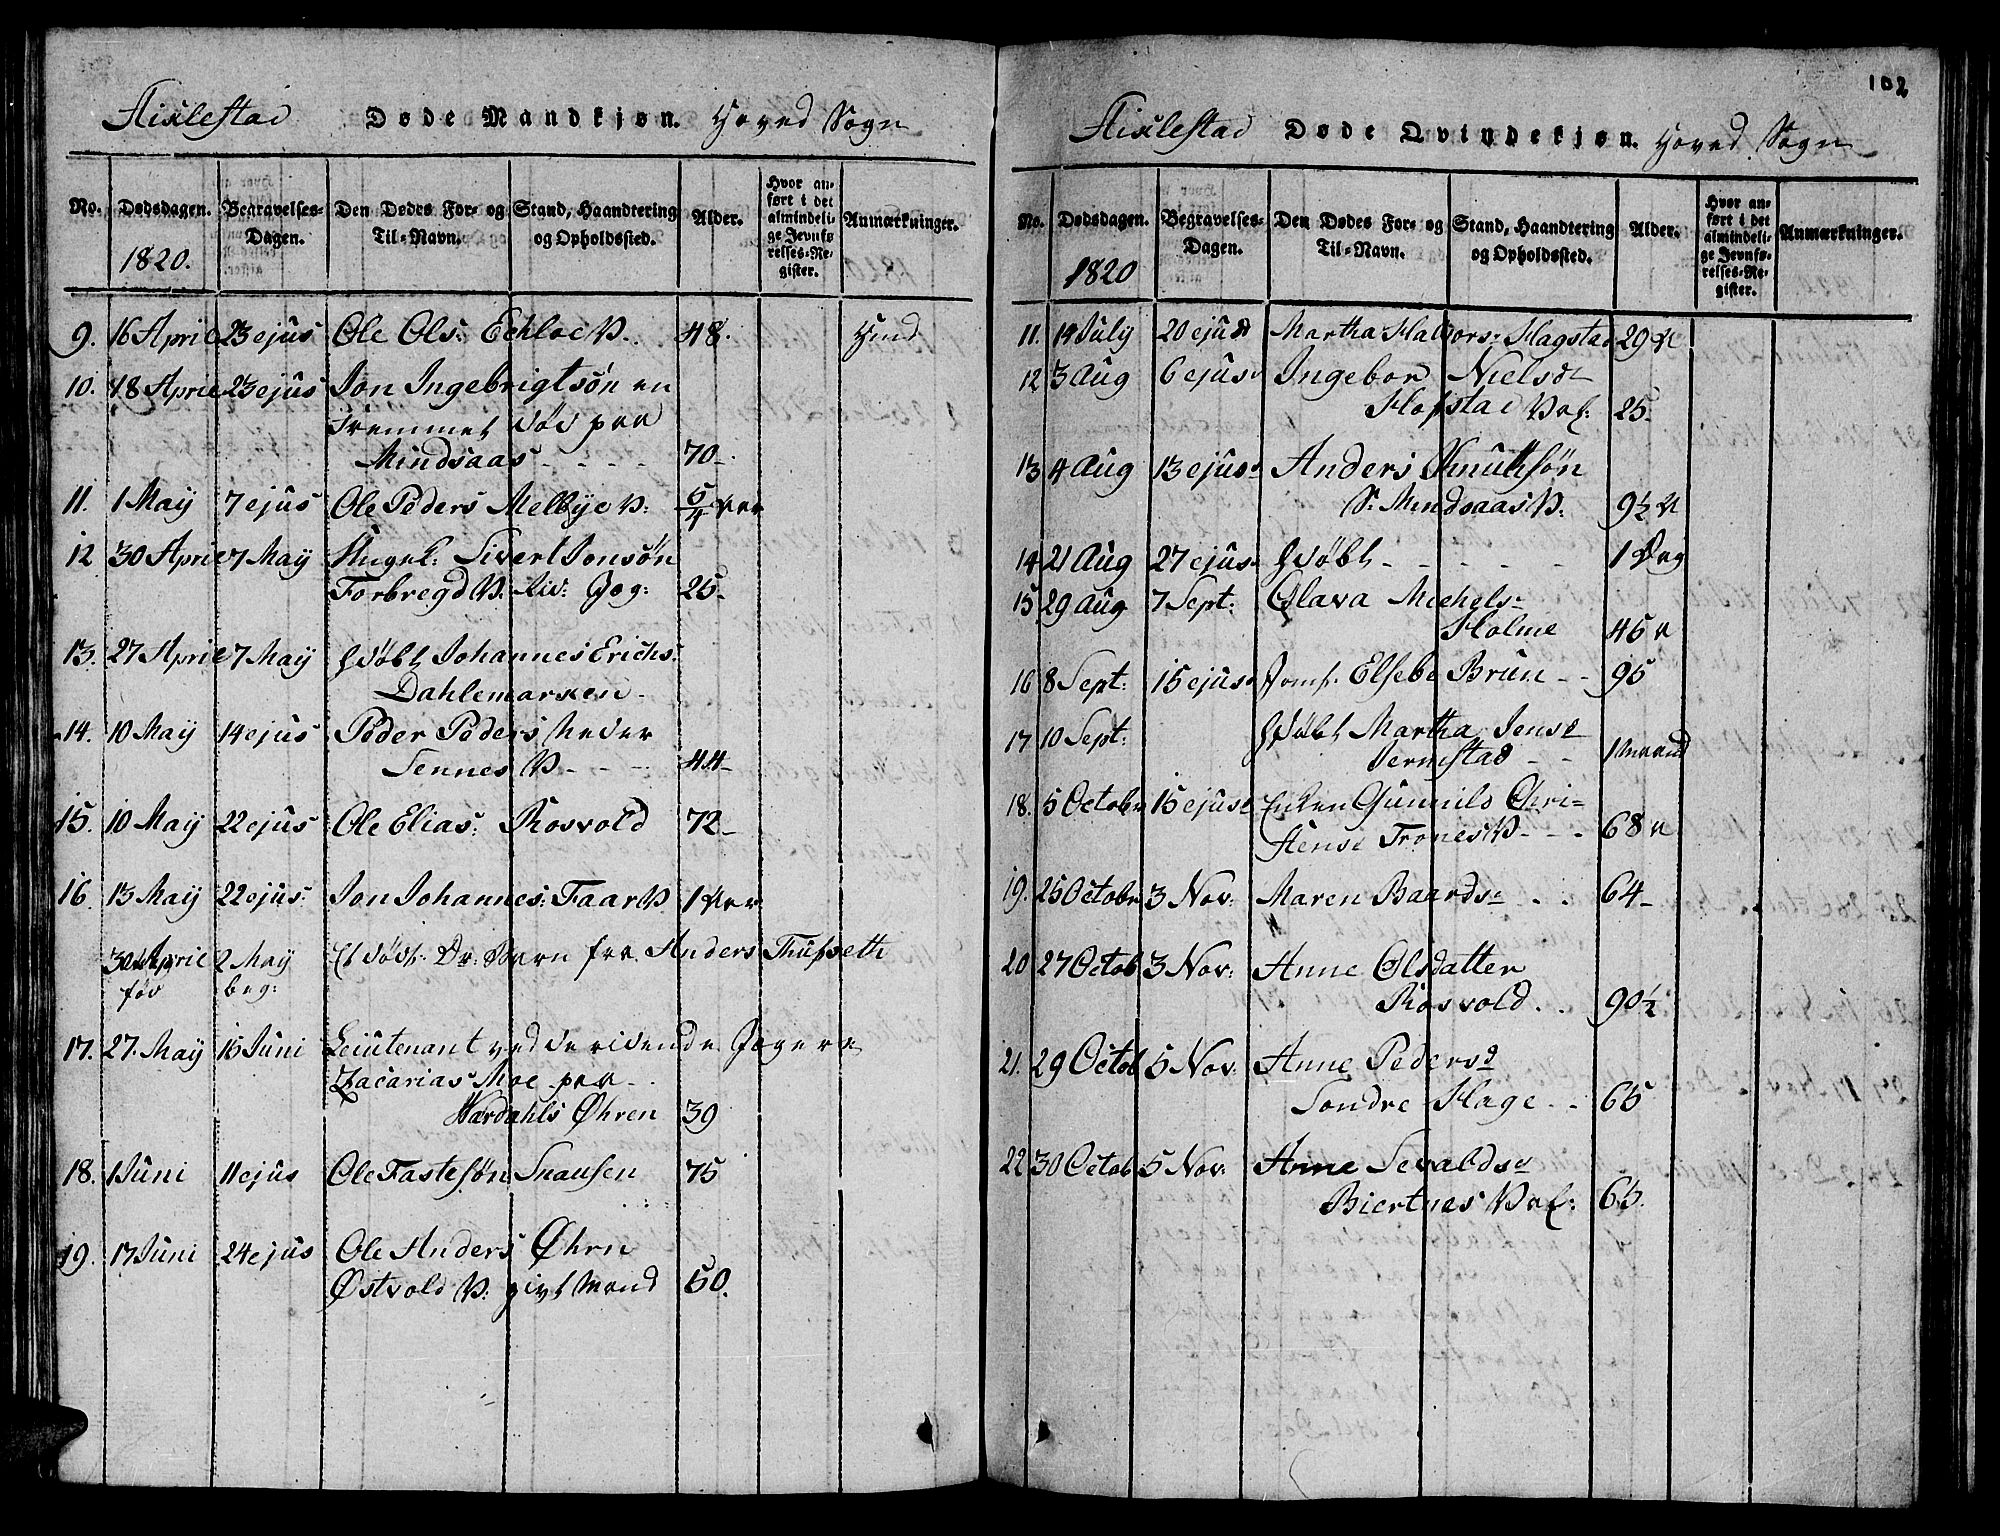 Stiklestad Døde Mandkjøn. Hoved Sogn
No. Dødsdagen. Begravelses-Dagen. Den Dødes For- og Til-Navn. Stand, Haandtering og Opholdssted. Alder. Hvor anført i det almindelige Jevnførelses-Register. Anmærkninger.
1820.
9. 16 April 23 ejus Ole Ols: Echloe P. 48.
10. 18 April 23 ejus Jon Ingebrigtsøn en
Fremmet død paa
Mindsaas - - - - 70-
11. 1 May 7 ejus Ole Peders Melbye P: 5/4 Aar
12 30 April 7 May Sivert Jonsøn
Forbregd P. 25-
13. 27 April 7 May Hdøbt Johannes Erichs:
Dahlemarken-
14. 10 May 14 ejus Peder Peders Neder
Tennes P - - - 44-
15. 10 May 22 ejus Ole Elias: Rosvold 72-
16. 13 May 22 ejus: Jon Johannes: Faar P. 1 Aar
30 April 2 May Barn fra Anders Thusseth
fød beg:
17. 27. May 15 Juni Leiutenant ved de ridende Jægere
Zacarias Moe paa
Værdahls Øhren 39
18. 1 Juni 11 ejus Ole Fastesøn Snausen 75
19. 17 Juni 24 ejus Ole Anders Øhrn
Østvold P: givt Mand 50.
102
Stiklestad Døde Qvindekjøn. Hoved Sogn
No. Dødsdagen. Begravelses-Dagen. Den Dødes For- og Til-Navn. Stand, Haandtering og Opholdssted. Alder. Hvor anført i det almindelige Jevnførelses-Register. Anmærkninger.
1820
11. 14 July 20 ejusd Martha Halvors: Hagstad 29
12 3 Aug 6 ejusd Ingebor Nielsd
Hofstad 25-
13 4 Aug 13 ejusd Anders Knutsøn
S. Mindsaas P: 9½
14 21 Aug 27 ejusd Hdøbt - - - - - 1 Dag
15 29 Aug 7 Sept: Olava Michels-
Holme 46
16 8 Sept: 15 ejusd Jomf. Elsebe Brun - - 95
17 10 Sept: Hdøbt Martha Jensd
Jermstad - - 1 Maaned
18. 5 Octobr 15 ejusd Enken Gunnild Chri=
stensd Trones P - - - 68
19. 25 Octobr 3 Nov: Maren Baardsd . . 64-
20 27 Octob 3 Nov: Anne Olsdatter
Rosvold. . 90½
21. 29 Octob 5 Nov: Anne Pedersd
Søndre Hage - - 65
22 30 Octob 5 Nov: Anne Sevaldsd
Biertnes 65.